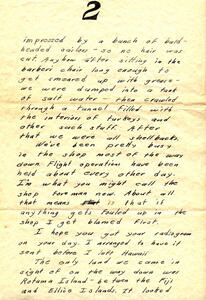 2
impressed by a bunch of bald-
headed sailors - so no hair was
cut. Anyhow after sitting in the
barbers chair long enough to
get smeared up with grease -
we were dumped into a tank
of salt water then crawled
through a tunnel filled with
the interiors of turkeys and
other such stuff. After
that we were all shellbacks.
We've been pretty busy
in the shop most of the way
down. Flight operations have been
held about every other day.
I'm what you might call the
shop foreman now. About all
that means is that if
anything gets fouled up in the
shop I get blamed first.
I hope you got your radiogram
on your day. I arranged to have it
sent before I left Hawaii.
The only land we came in
sight of on the way down was
Rotuma Island - between the Fiji
and Ellice Islands. It looked